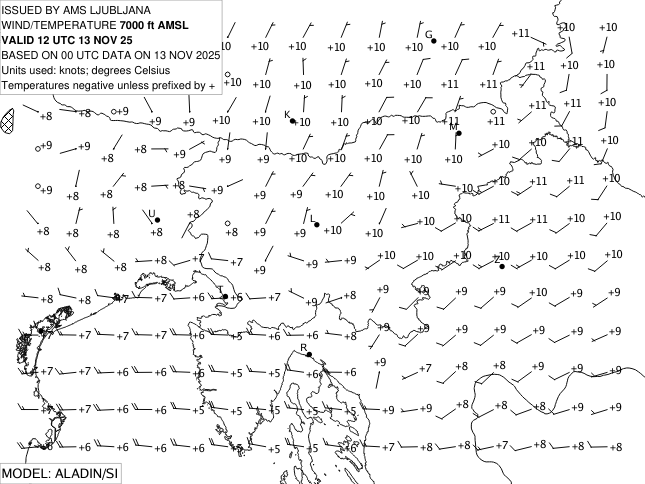 ISSUED BY AMS LJUBLJANA
WIND/TEMPERATURE 7000 ft AMSL
VALID 12 UTC 13 NOV 25
BASED ON 00 UTC DATA ON 13 NOV 2025
Units used: knots; degrees Celsius
Temperatures negative unless prefixed by +
G +11 +10 +10
+10 +10 +10 +10 +10 +10
+11 +10 +10
+10 +10 +10 +10 +10 +10 +11 +11
+8 +8 +9 K +10 +10 +10 +10 +11 M +11 +11 +10 +10
+9 +9 +8 +8 +9 +9 +9 +10 +10 +10 +10 +10 +10 +11 +10 +10
+9 +8 +8 +8 +9 +9 +10 +10 +10 +10 +10 +11 +11 +10
+8 +8 U +8 +8 +8 +9 L +10 +10 +10 +10 +11 +10 +10
+8 +8 +8 +7 +7 +9 +9 +9 +10 +10 Z +10 +10 +10
+8 +8 +7 +7 +6 T +6 +7 +9 +8 +9 +9 +9 +9 +10 +9
+7 +7 +6 +6 +5 +6 +6 R +8 +9 +9 +9 +9 +9 +9
+7 +7 +6 +6 +6 +5 +5 +6 +6 +9 +7 +8 +8 +9 +9
+7 +6 +6 +6 +5 +5 +5 +5 +9 +9 +8 +8 +9 +9
+6 +6 +6 +6 +5 +5 +5 +6 +7 +8 +8 +7 +8 +8 +8
MODEL: ALADIN/SI